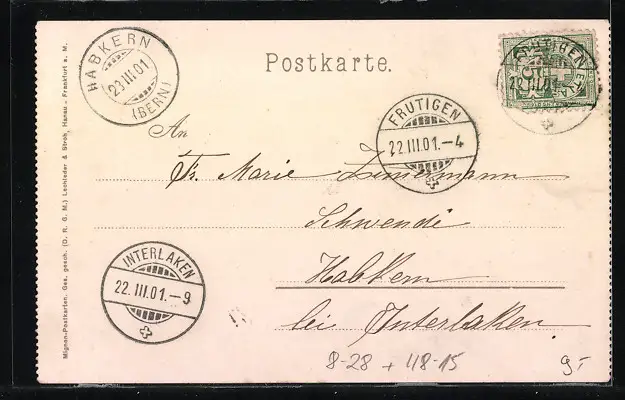 HABKERN
23 III 01
(BERN)
Postkarte.
FRUTIGEN
An
FRUTIGEN
22.III.01.-4
Fr. Marie Zimmermann
Schwendi
Habkern
bei Interlaken.
INTERLAKEN
22.III.01.-9
8-28 + 48-15
9,-
Mignon-Postkarten. Ges. gesch. (D. R. G. M.) Lechleder & Stroh, Hanau - Frankfurt a. M.